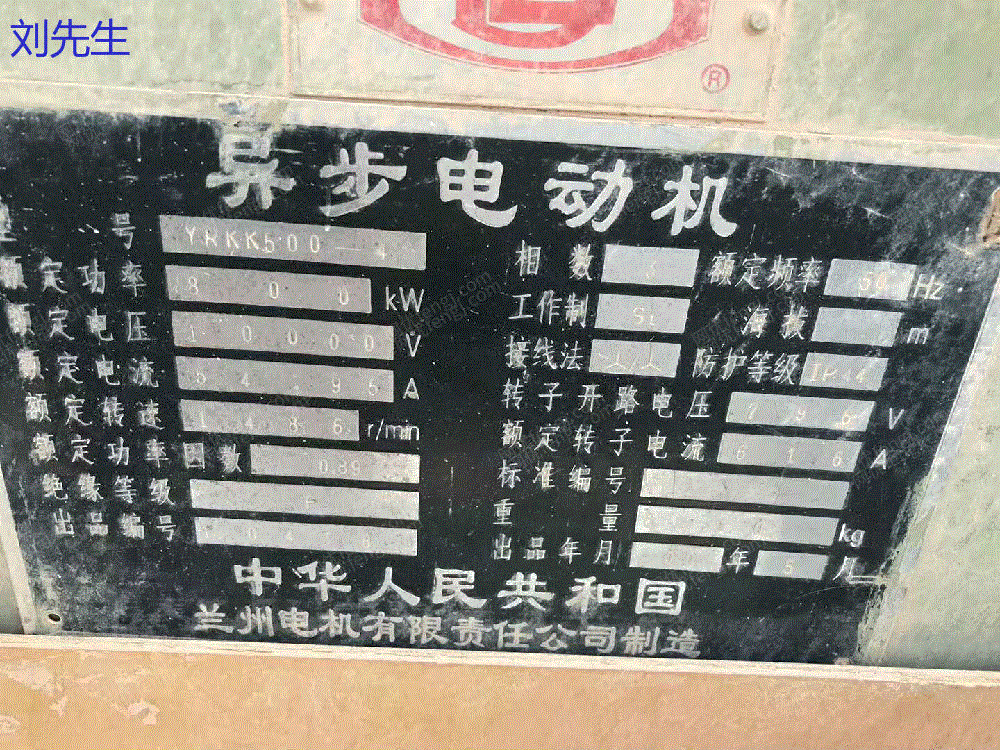 刘先生
®
异步电动机
号 YRKK500-4
额定功率 800 kW
额定电压 10000 V
额定电流 A
额定转速 1486 r/min
额定功率因数 0.89
绝缘等级
出品编号
相数 3 额定频率 50 Hz
工作制 S1 海拔 m
接线法 防护等级
转子开路电压 V
额定转子电流 616 A
标准编号
重量 kg
出品年月 年 5 月
中华人民共和国
兰州电机有限责任公司制造